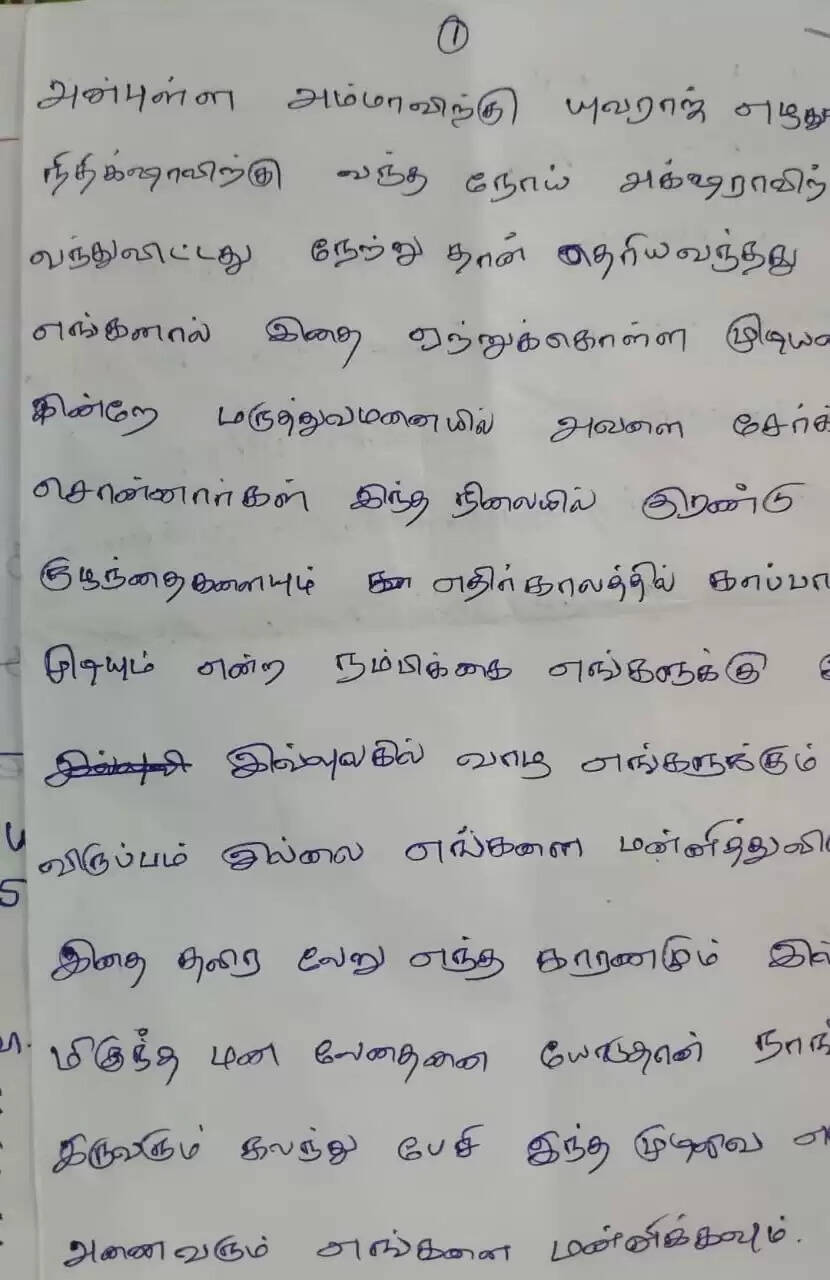 1
அன்புள்ள அம்மாவிற்கு யுவராஜ் எழுது
நிதிக்ஷாவிற்கு வந்த நோய் அக்ஷராவிற்
வந்துவிட்டது நேற்று தான் தெரியவந்தது
எங்களால் இதை ஏற்றுக்கொள்ள முடிய
இன்றே மருத்துவமனையில் அவளை சேர்க்
சொன்னார்கள் இந்த நிலையில் இரண்டு
குழந்தைகளையும் எதிர்காலத்தில் காப்பா
முடியும் என்ற நம்பிக்கை எங்களுக்கு
இவ்வுலகில் வாழ எங்களுக்கும்
விருப்பம் இல்லை எங்களை மன்னித்துவி
இதை தவிர வேறு எந்த காரணமும் இல்
மிகுந்த மன வேதனை யோடுதான் நாங்
இருவரும் கலந்து பேசி இந்த முடிவை எ
அனைவரும் எங்களை மன்னிக்கவும்.